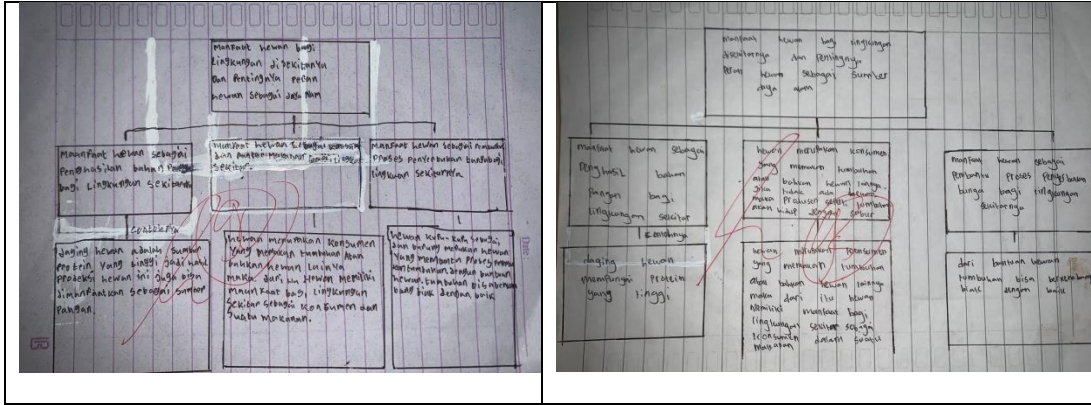 Manfaat hewan bagi
Lingkungan disekitarnya
Dan Pentingnya Peran
hewan sebagai daya alam
Manfaat hewan sebagai
Penghasilan bahan Pangan
bagi Lingkungan sekitarnya
manfaat hewan
dan rantai makanan
sekitar.
Manfaat hewan sebagai
Proses Penyerbukan bunga bagi
lingkungan sekitarnya
contohnya
daging hewan adalah sumber
Protein yang tinggi jadi hasil
Produksi hewan ini juga bisa
dimanfaatkan sebagai sumber
Pangan.
hewan merupakan konsumen
Yang memakan tumbuhan Atau
bahkan hewan lainya
maka dari itu Hewan memiliki
manfaat bagi lingkungan
sekitar sebagai konsumen dan
suatu makanan.
hewan kupu-kupu sebagai
dan burung merupakan hewan
Yang membantu Proses
dengan bantuan
hewan tumbuhan bisa berkem
bang biak dengan baik
Date
manfaat hewan bagi lingkungan
disekitarnya dan pentingnya
peran hewan sebagai sumber
daya alam
manfaat hewan sebagai
penghasil bahan
pangan bagi
lingkungan sekitar
hewan merupakan konsumen
yang memakan tumbuhan
atau bahkan hewan lainya.
jika tidak ada hewan
maka produsen seperti tumbuhan
akan hidup dengan subur
manfaat hewan sebagai
pembantu proses penyerbukan
bunga bagi lingkungan
sekitarnya
contohnya
daging hewan
protein
yang tinggi
hewan merupakan konsumen
yang memakan tumbuhan
atau bahkan hewan lainya
maka dari itu hewan
memiliki manfaat bagi
lingkungan sekitar sebagai
konsumen dalam suatu
makanan
dari bantuan hewan
tumbuhan bisa berkembang
biak dengan baik